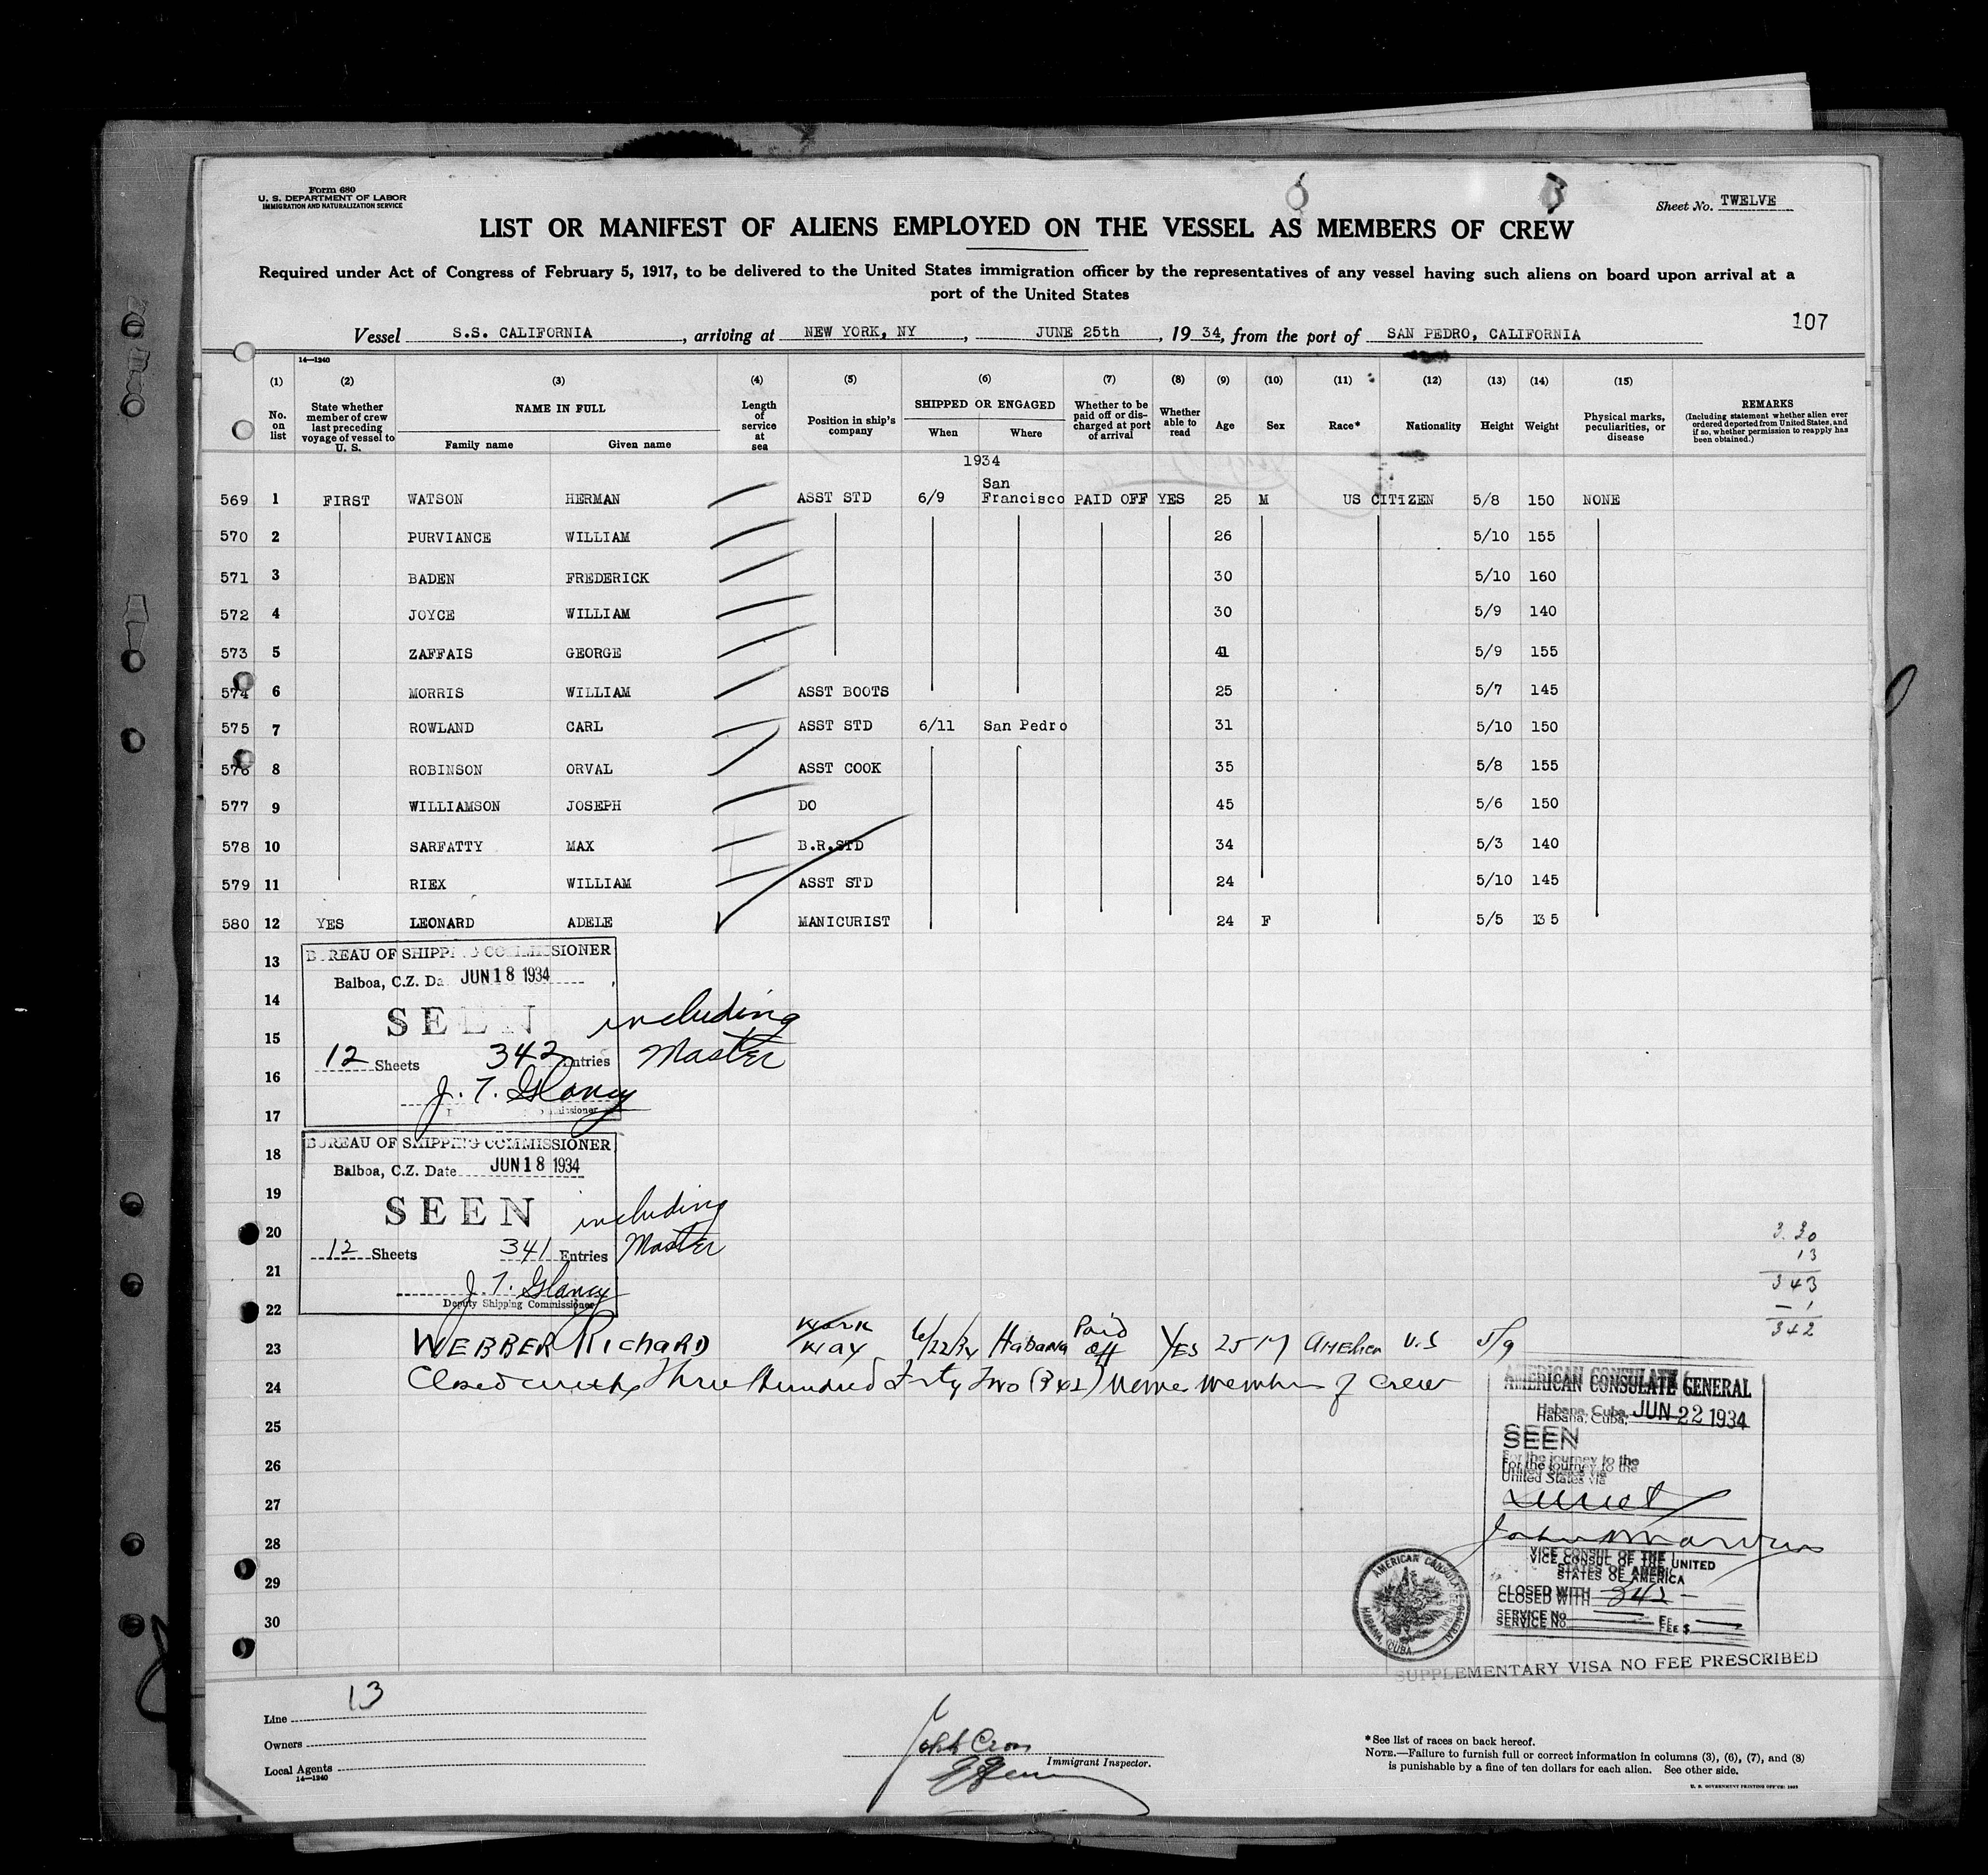 Form 680
U. S. DEPARTMENT OF LABOR
IMMIGRATION AND NATURALIZATION SERVICE
Sheet No. TWELVE
LIST OR MANIFEST OF ALIENS EMPLOYED ON THE VESSEL AS MEMBERS OF CREW
Required under Act of Congress of February 5, 1917, to be delivered to the United States immigration officer by the representatives of any vessel having such aliens on board upon arrival at a
port of the United States
107
Vessel S.S. CALIFORNIA, arriving at NEW YORK, NY, JUNE 25th, 1934, from the port of SAN PEDRO, CALIFORNIA
14—1240
(1) (2) (3) (4) (5) (6) (7) (8) (9) (10) (11) (12) (13) (14) (15)
No. on list
State whether member of crew last preceding voyage of vessel to U. S.
NAME IN FULL
Family name Given name
Length of service at sea
Position in ship's company
SHIPPED OR ENGAGED
When Where
Whether to be paid off or discharged at port of arrival
Whether able to read
Age
Sex
Race*
Nationality
Height
Weight
Physical marks, peculiarities, or disease
REMARKS
(Including statement whether alien ever ordered deported from United States, and if so, whether permission to reapply has been obtained.)
1934
569 1 FIRST WATSON HERMAN ASST STD 6/9 San Francisco PAID OFF YES 25 M US CITIZEN 5/8 150 NONE
570 2 PURVIANCE WILLIAM 26 5/10 155
571 3 BADEN FREDERICK 30 5/10 160
572 4 JOYCE WILLIAM 30 5/9 140
573 5 ZAFFAIS GEORGE 41 5/9 155
574 6 MORRIS WILLIAM ASST BOOTS 25 5/7 145
575 7 ROWLAND CARL ASST STD 6/11 San Pedro 31 5/10 150
576 8 ROBINSON ORVAL ASST COOK 35 5/8 155
577 9 WILLIAMSON JOSEPH DO 45 5/6 150
578 10 SARFATTY MAX B.R.STD 34 5/3 140
579 11 RIEX WILLIAM ASST STD 24 5/10 145
580 12 YES LEONARD ADELE MANICURIST 24 F 5/5 135
13
BUREAU OF SHIPPING COMMISSIONER
Balboa, C.Z. Da JUN 18 1934
14
SEEN including
15
12 Sheets 342 Entries Master
16
J. T. Glancy
17
BUREAU OF SHIPPING COMMISSIONER
18
Balboa, C.Z. Date JUN 18 1934
19
SEEN including
20
12 Sheets 341 Entries Master
21
J. T. Glancy
Deputy Shipping Commissioner
22
3.30
13
343
- 1
342
23 WEBBER RICHARD Work Way 6/22/34 Habana Paid Off YES 25 M American U.S 5/9
24 Closed with Three Hundred Forty Two (342) members of crew
25
26
27
28
29
30
AMERICAN CONSULATE GENERAL
Habana, Cuba, JUN 22 1934
SEEN
For the journey to the
United States via
direct
VICE CONSUL OF THE UNITED
STATES OF AMERICA
CLOSED WITH 342
SERVICE No FEE $
AMERICAN CONSULATE GENERAL
HABANA, CUBA
SUPPLEMENTARY VISA NO FEE PRESCRIBED
13
Line
Owners
Local Agents
14—1240
John Cron
Immigrant Inspector.
*See list of races on back hereof.
NOTE.—Failure to furnish full or correct information in columns (3), (6), (7), and (8)
is punishable by a fine of ten dollars for each alien. See other side.
U. S. GOVERNMENT PRINTING OFFICE: 1933